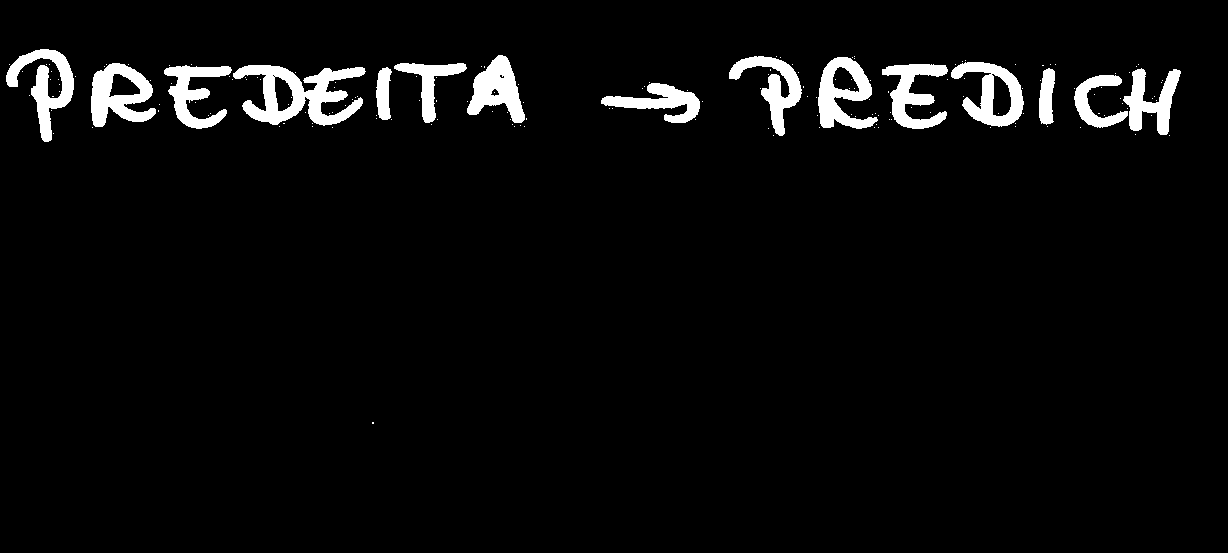 PREDEITA → PREDICH